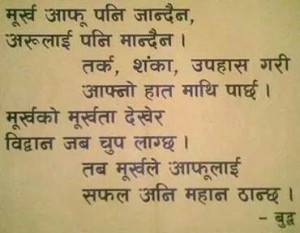 मूर्ख आफू पनि जान्दैन,
अरूलाई पनि मान्दैन ।
तर्क, शंका, उपहास गरी
आफ्नो हात माथि पार्छ ।
मूर्खको मूर्खता देखेर
विद्वान जब चुप लाग्छ ।
तब मूर्खले आफूलाई
सफल अनि महान ठान्छ ।
– बुद्ध